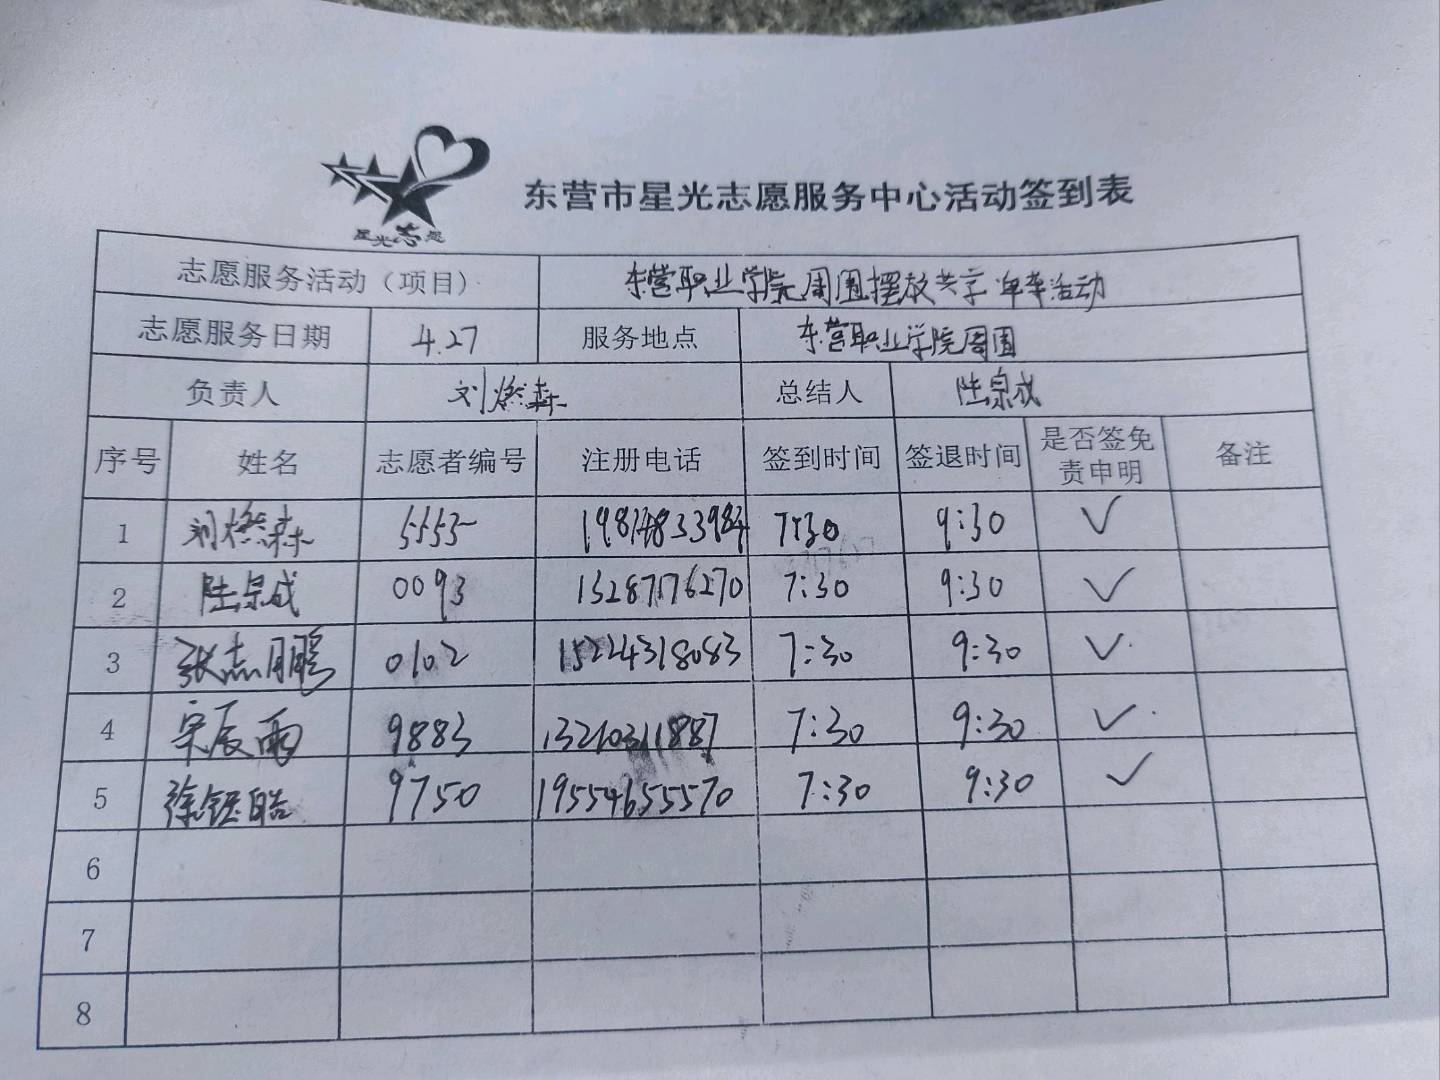 星光志愿
东营市星光志愿服务中心活动签到表
志愿服务活动（项目） 东营职业学院周围摆放共享单车活动
志愿服务日期 4.27 服务地点 东营职业学院周围
负责人 刘燃森 总结人 陆宗成
序号 姓名 志愿者编号 注册电话 签到时间 签退时间 是否签免责申明 备注
1 刘燃森 5553 19814833984 7:30 9:30 ✓
2 陆宗成 0093 13287176270 7:30 9:30 ✓
3 张志鹏 0102 15224318083 7:30 9:30 ✓
4 宋辰雨 9883 13210311887 7:30 9:30 ✓
5 徐铤皓 9750 19554655570 7:30 9:30 ✓
6
7
8